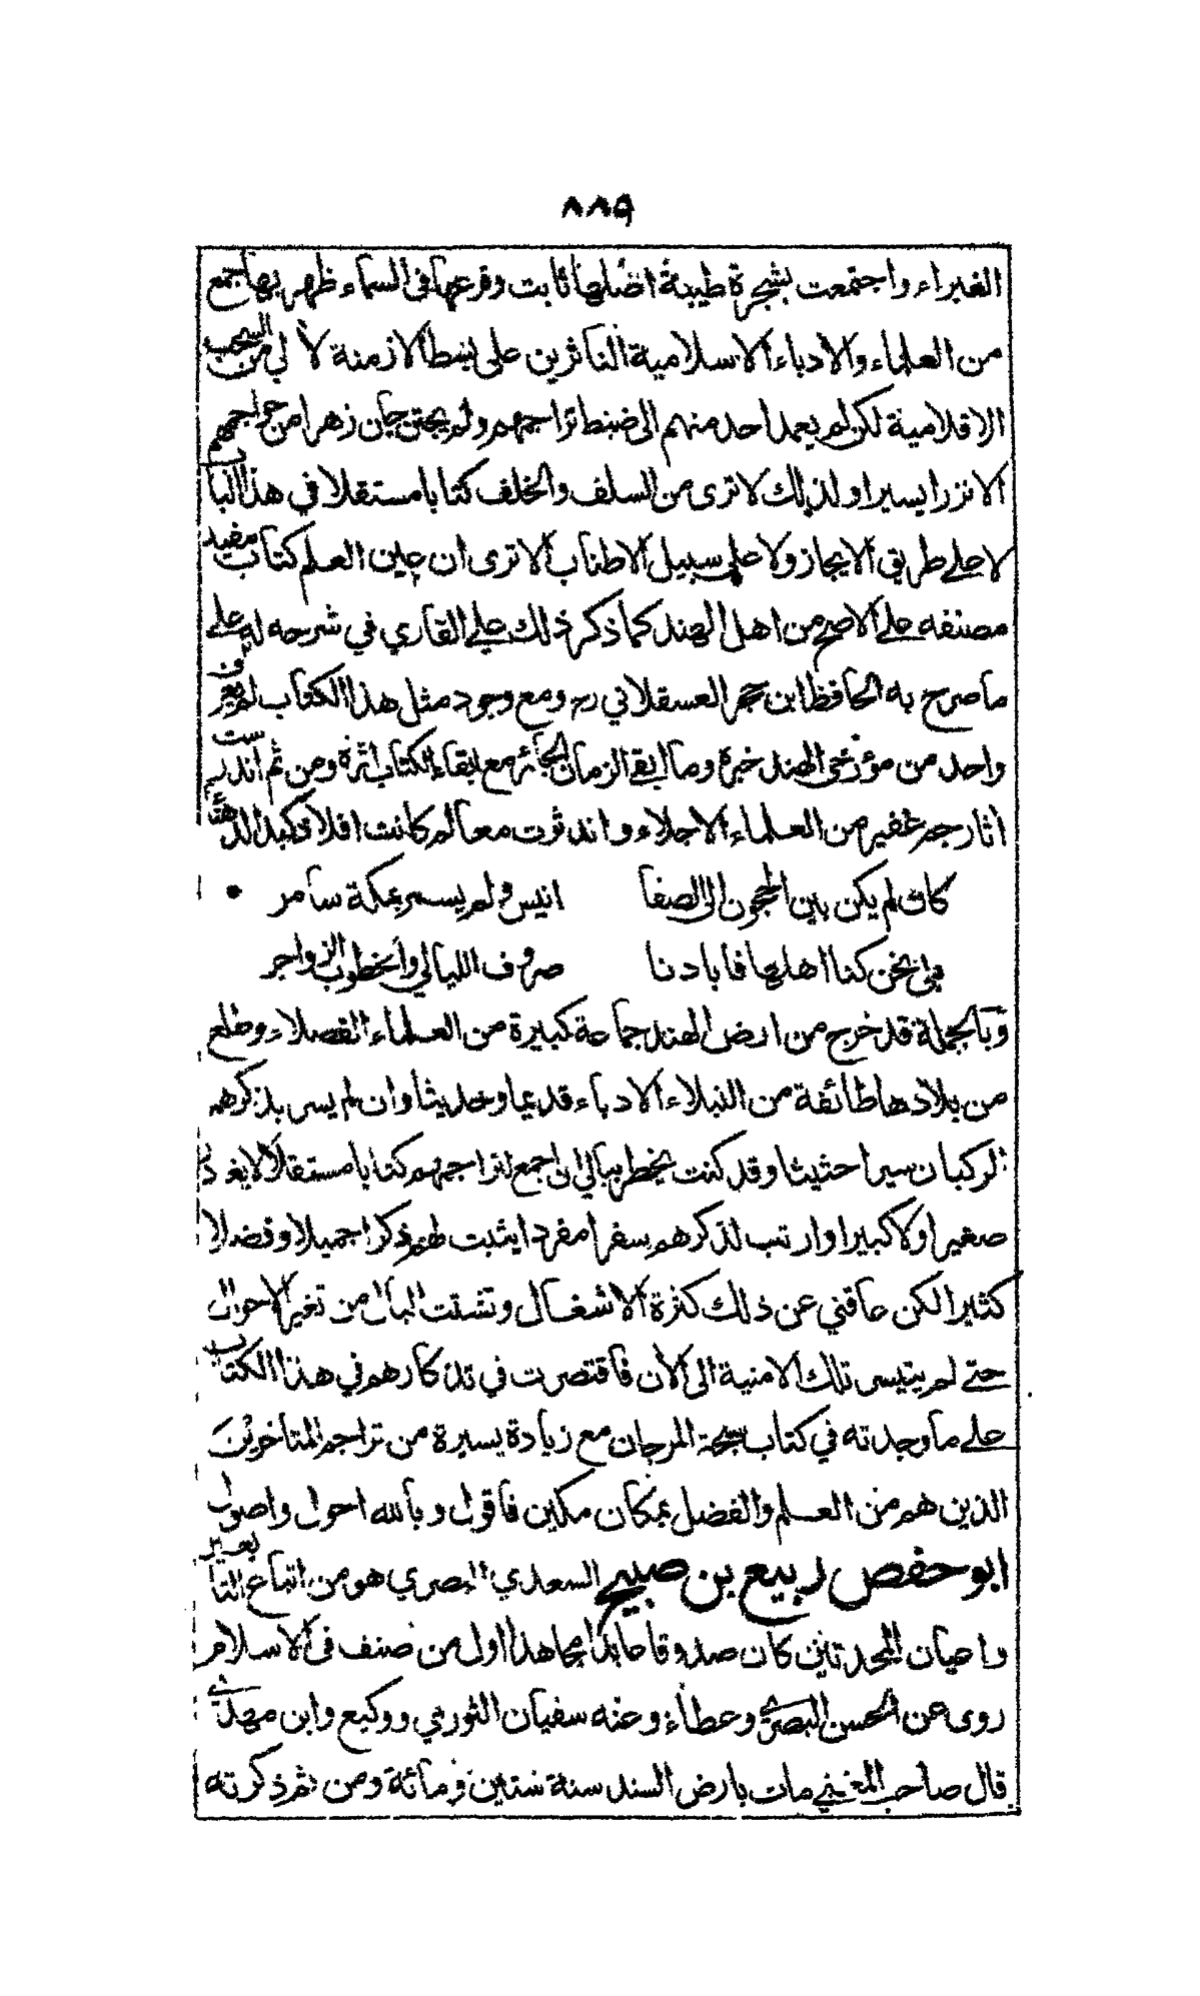 ٨٨٩
الغبراء واجتمعت بشجرة طيبة اصلها ثابت وفرعها فى السماء ظهر بها جمع
من العلماء والادباء الاسلامية الناثرين على بسط الازمنة لآلي من السحب
الاقلامية لكن لم يعمد احد منهم الى ضبط تراجمهم ولم يجتن جان زهرا من حواجمهم
الا نزرا يسيرا ولذلك لا ترى من السلف والخلف كتابا مستقلا في هذا الباب
لا على طريق الايجاز ولا على سبيل الاطناب الا ترى ان عين العلم كتاب مفيد
مصنفه على الاصح من اهل الهند كما ذكر ذلك علي القاري في شرحه له على
ما صرح به الحافظ ابن حجر العسقلاني رح ومع وجود مثل هذا الكتاب لم يعرف
واحد من مؤرخى الهند خبره وما ابقى الزمان الجائر مع بقاء الكتاب اثره ومن ثم اندرست
اثار جم غفير من العلماء الاجلاء واندثرت معالم كانت افلاذ كبد الدهناء
كان لم يكن بين الحجون الى الصفا انيس ولم يسمر بمكة سامر
بلى نحن كنا اهلها فابادنا صروف الليالي والخطوب الزواجر
وبالجملة قد خرج من ارض الهند جماعة كبيرة من العلماء الفضلاء وطلع
من بلادها طائفة من النبلاء الادباء قديما وحديثا وان لم يسر بذكرهم
الركبان سيرا حثيثا وقد كنت يخطر ببالي ان اجمع لتراجمهم كتابا مستقلا لا يغادر
صغيرا ولا كبيرا وارتب لذكرهم سفرا مفردا يثبت لهم ذكرا جميلا وفضلا
كثيرا لكن عاقني عن ذلك كثرة الاشغال وتشتت البال من تغير الاحوال
حتى لم يتيسر تلك الامنية الى الآن فاقتصرت في تذكارهم في هذا الكتاب
على ما وجدته في كتاب سبحة المرجان مع زيادة يسيرة من تراجم المتاخرين
الذين هم من العلم والفضل بمكان مكين فاقول وبالله احول واصول
ابو حفص ربيع بن صبيح السعدي البصري هو من اتباع التابعين
واعيان المحدثين كان صدوقا عابدا مجاهدا اول من صنف فى الاسلام
روى عن الحسن البصري وعطاء وعنه سفيان الثوري ووكيع وابن مهدي
قال صاحب المغني مات بارض السند سنة ستين ومائة ومن ثم ذكرته